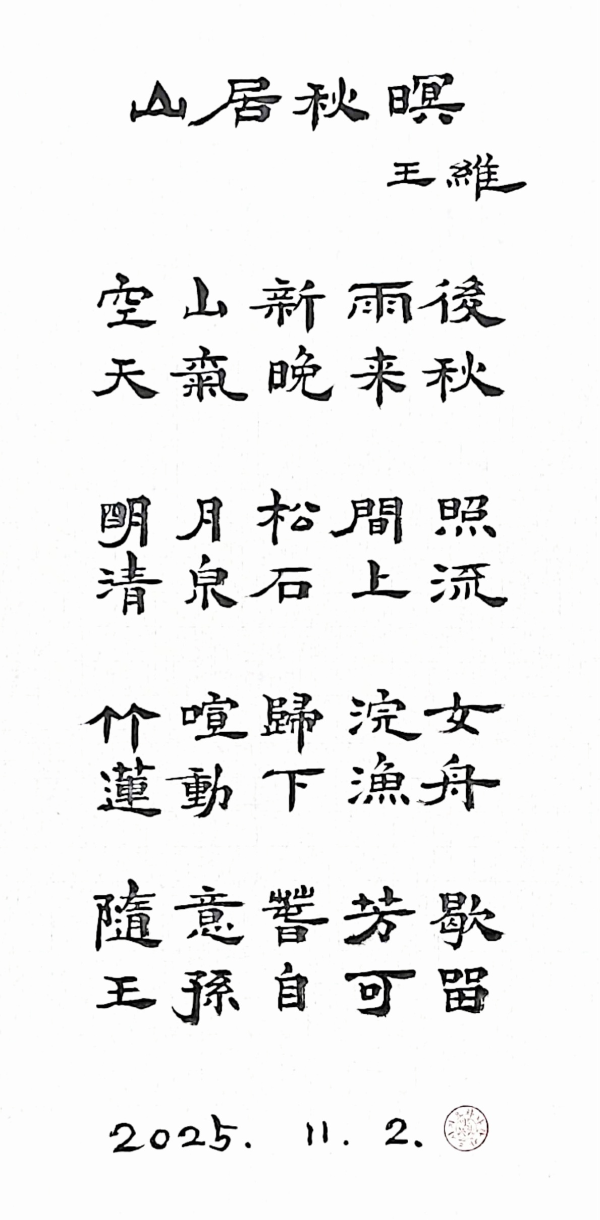 山居秋暝
王維
空山新雨後
天氣晚来秋
明月松間照
清泉石上流
竹喧歸浣女
蓮動下漁舟
隨意春芳歇
王孫自可留
2025. 11. 2.